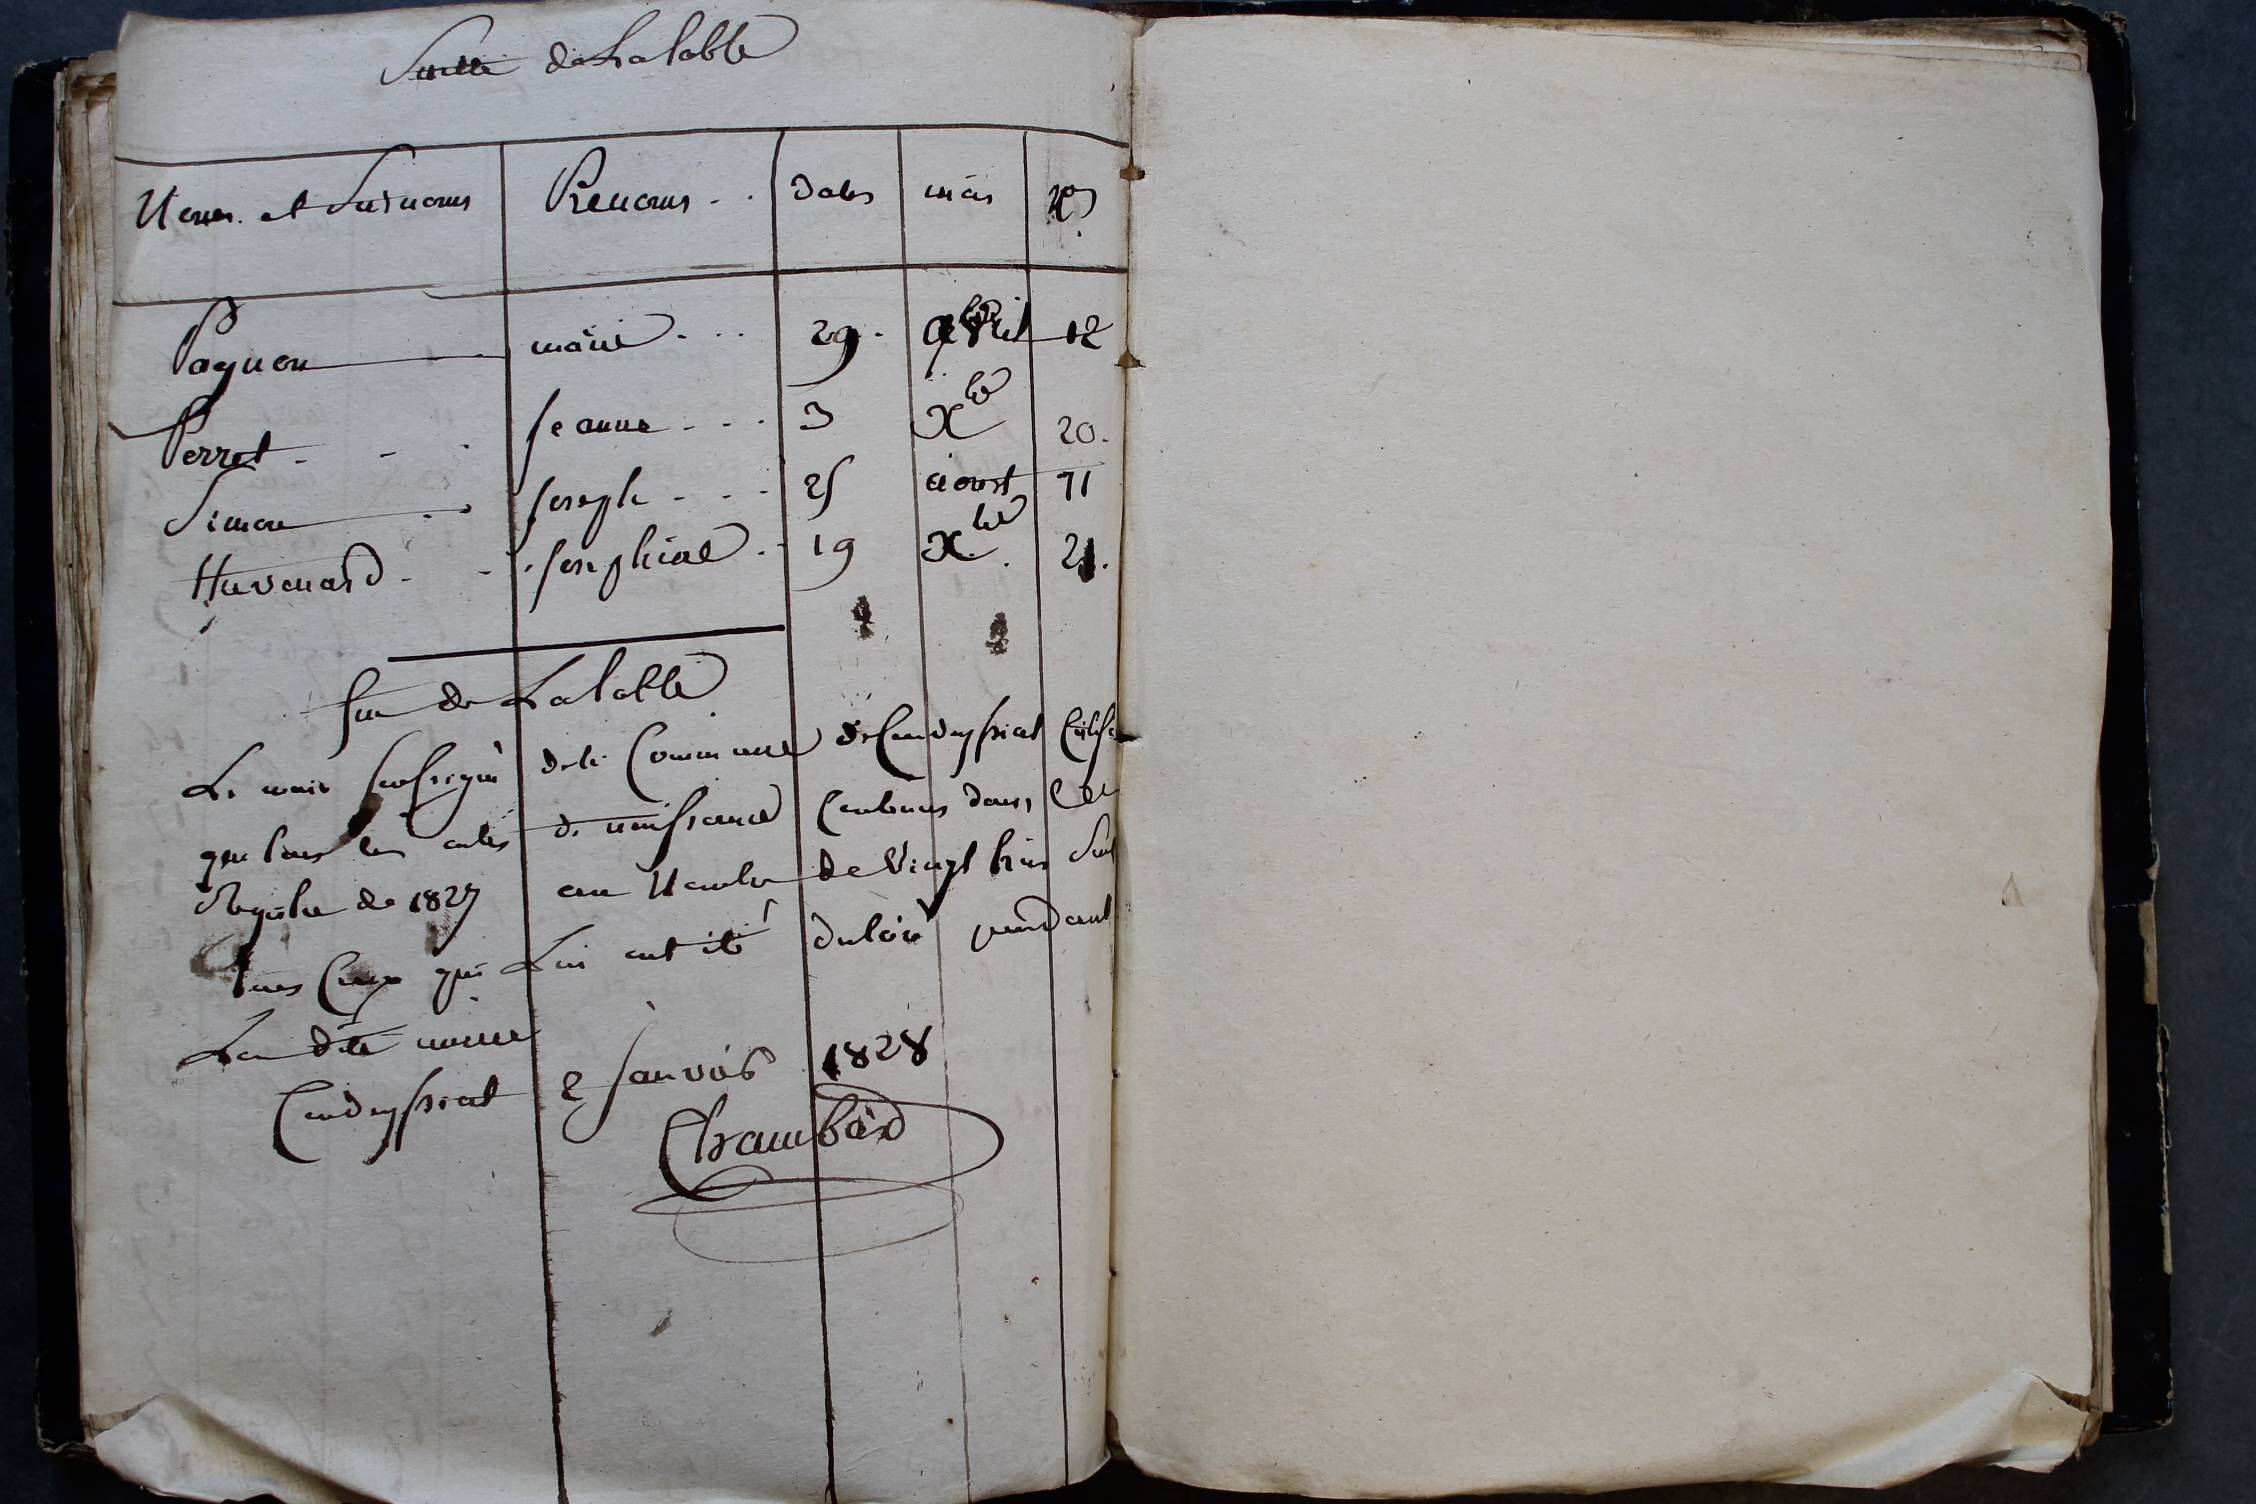 Suitte de La table
Noms et Surnoms Prenoms dates mois Nos
Pagnon marie 29 12
Perret jeanne 3 Xbre 20.
Simon joseph 25 aoust 11
Huvenard josephine 19 Xbre 21.
fin de La table
Le maire Soussigné de la Commune de Condeyssiat Certifie
que tous les actes de naissance Contenus dans Ce
Registre de 1827 au Nombre de Vingt trois Sont
tous Ceux qui Lui ont été pendant
La dite année
Condeyssiat 2 janvier 1828
Chambard